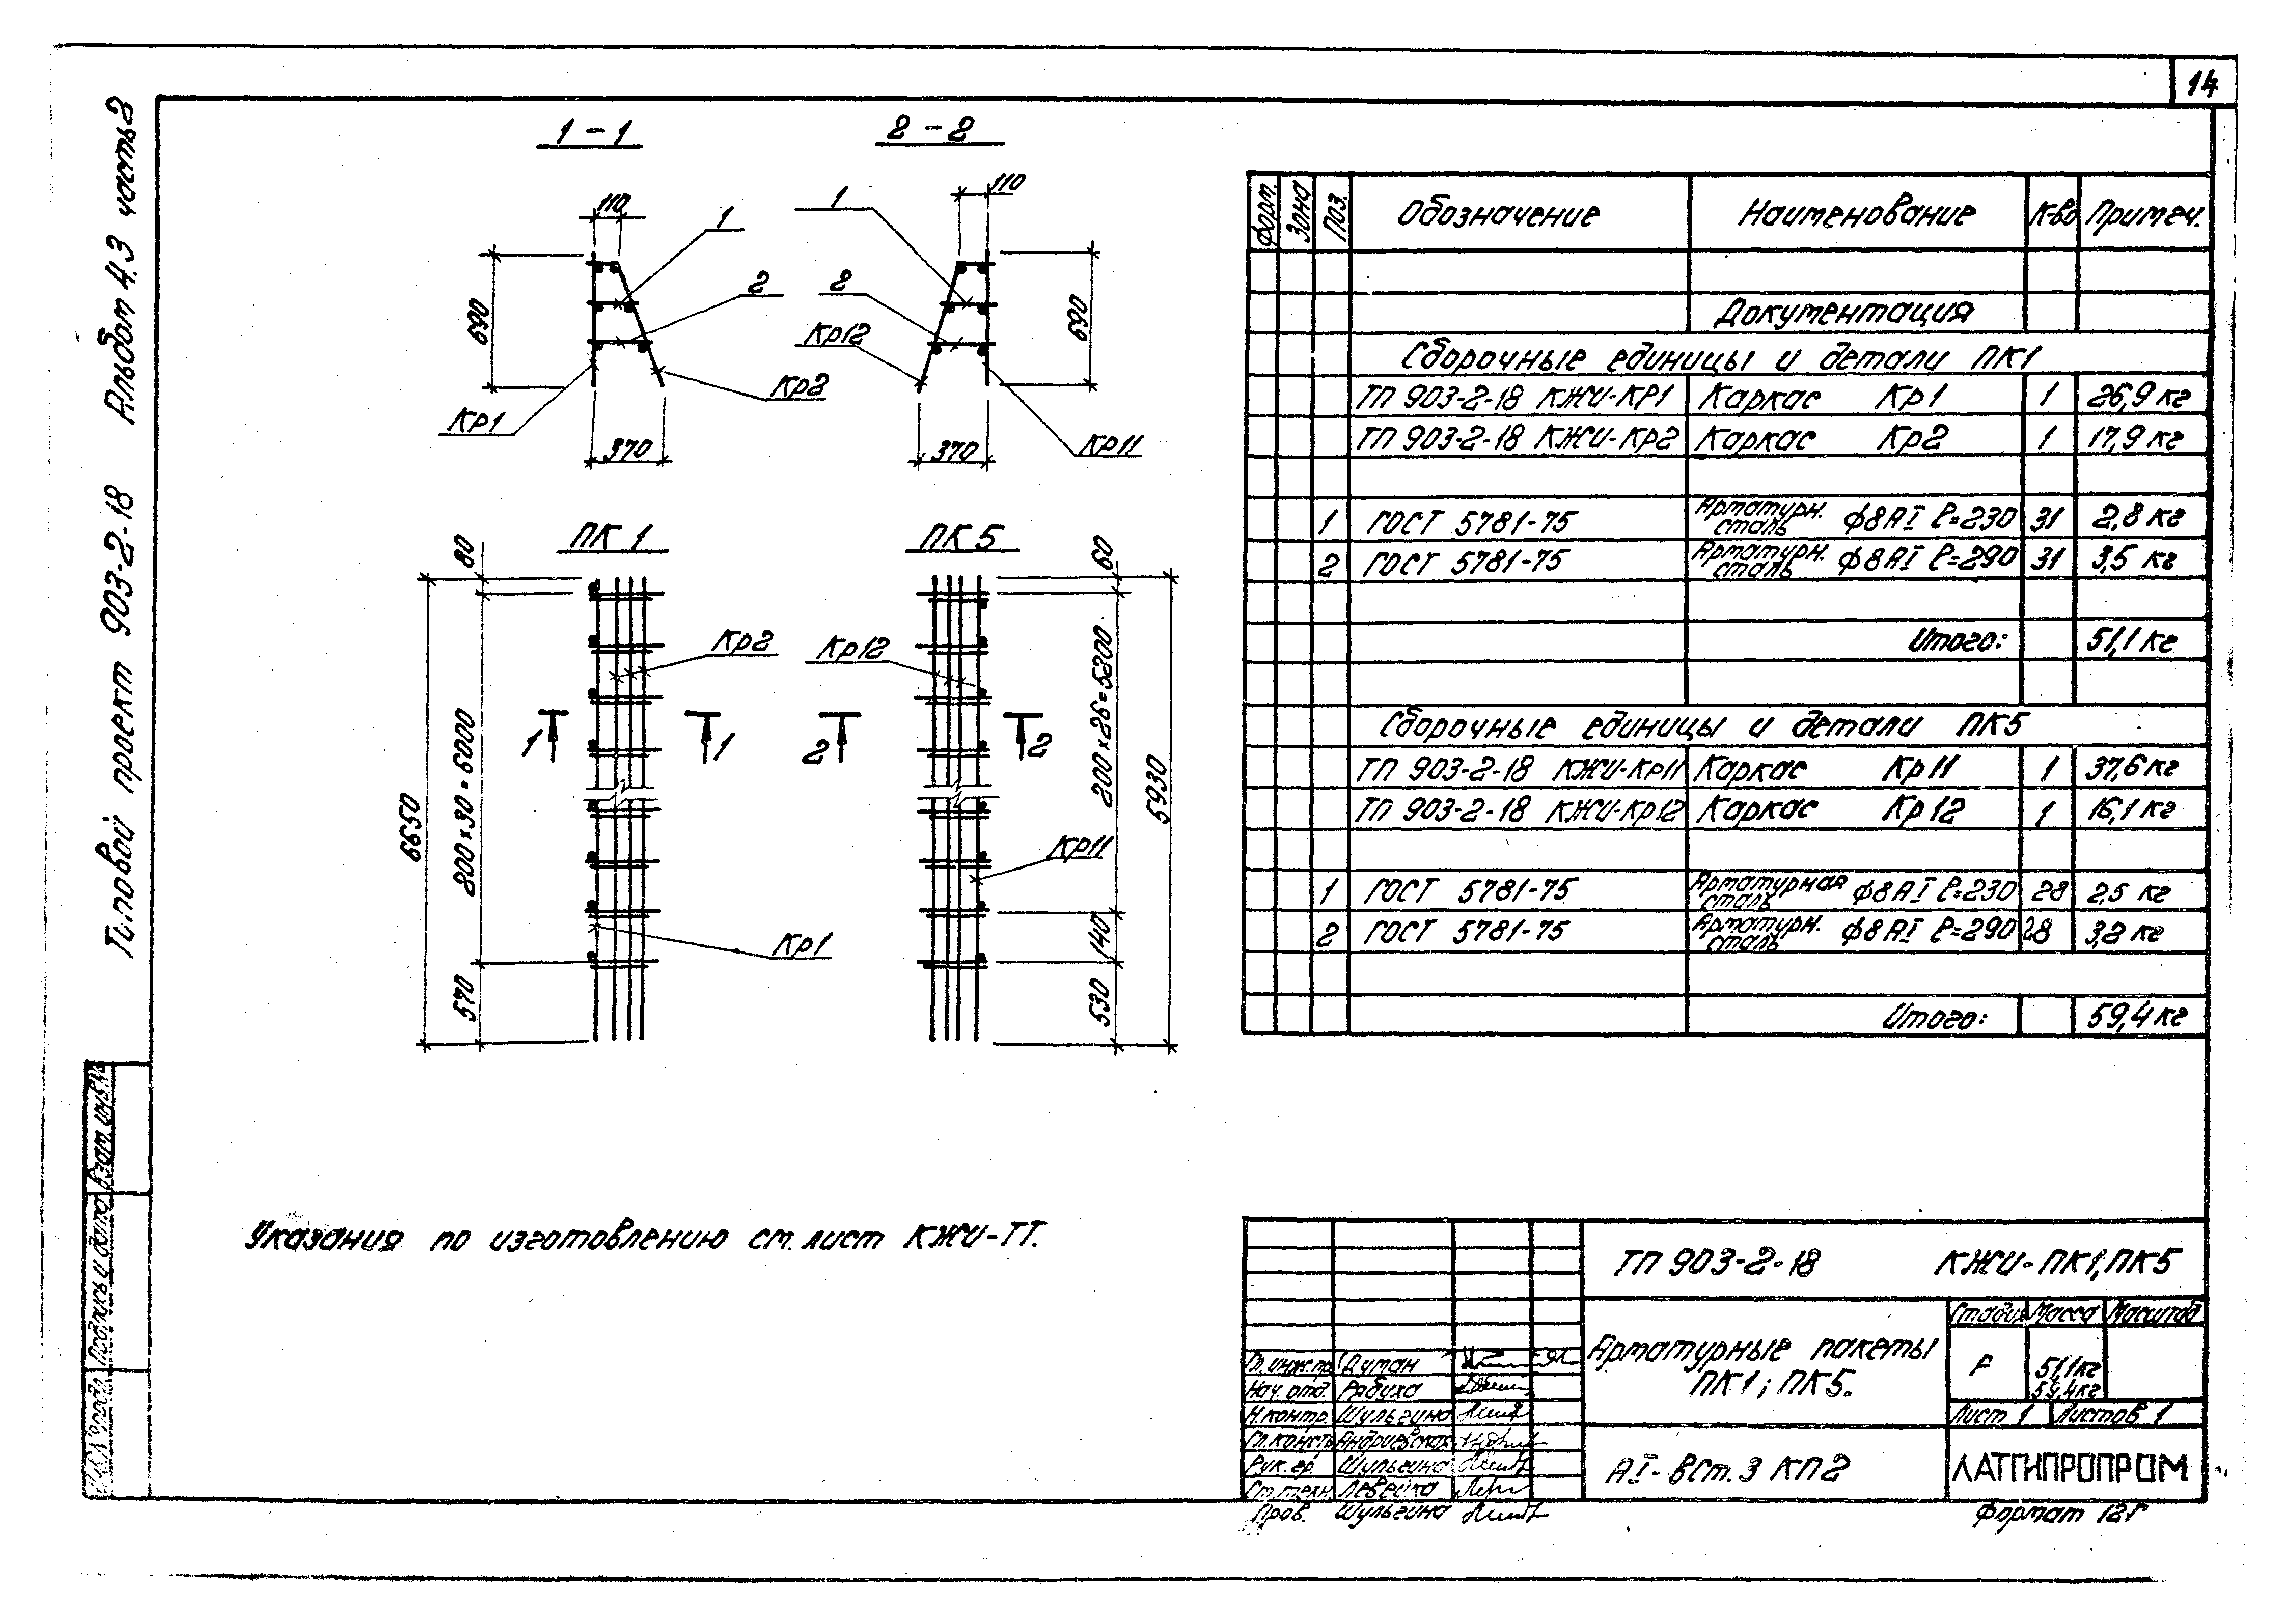 14
Типовой проект 903-2-18 Альбом 4.3 часть 2
1-1
2-2
110
110
1
1
2
2
690
690
Кр1
Кр2
Кр12
Кр11
370
370
ПК 1
ПК 5
80
60
Кр2
Кр12
1 1
2 2
200×30=6000
200×26=5200
6650
5930
Кр11
Кр1
140
570
530
Форм. Зона Поз. Обозначение Наименование К-во Примеч.
Документация
Сборочные единицы и детали ПК1
ТП 903-2-18 КЖИ-КР1 Каркас Кр1 1 26,9 кг
ТП 903-2-18 КЖИ-Кр2 Каркас Кр2 1 17,9 кг
1 ГОСТ 5781-75 Арматурн. сталь ф8АI ℓ=230 31 2,8 кг
2 ГОСТ 5781-75 Арматурн. сталь ф8АI ℓ=290 31 3,5 кг
Итого: 51,1 кг
Сборочные единицы и детали ПК5
ТП 903-2-18 КЖИ-Кр11 Каркас Кр11 1 37,6 кг
ТП 903-2-18 КЖИ-Кр12 Каркас Кр12 1 16,1 кг
1 ГОСТ 5781-75 Арматурная сталь ф8АI ℓ=230 28 2,5 кг
2 ГОСТ 5781-75 Арматурн. сталь ф8АI ℓ=290 28 3,2 кг
Итого: 59,4 кг
Указания по изготовлению см. лист КЖИ-ТТ.
ТП 903-2-18 КЖИ-ПК1,ПК5
Арматурные пакеты
ПК1; ПК5.
Стадия Масса Масштаб
Р 51,1кг
59,4кг
Лист 1 Листов 1
АI-ВСт.3 КП2
ЛАТГИПРОПРОМ
Гл.инж.пр. Думан
Нач. отд. Рябуха
Н.контр. Шульгина
Гл.конст. Андриевская
Рук. гр. Шульгина
Ст.техн. Левейка
Пров. Шульгина
Формат 12Г
Подпись и дата
Взам.инв.№